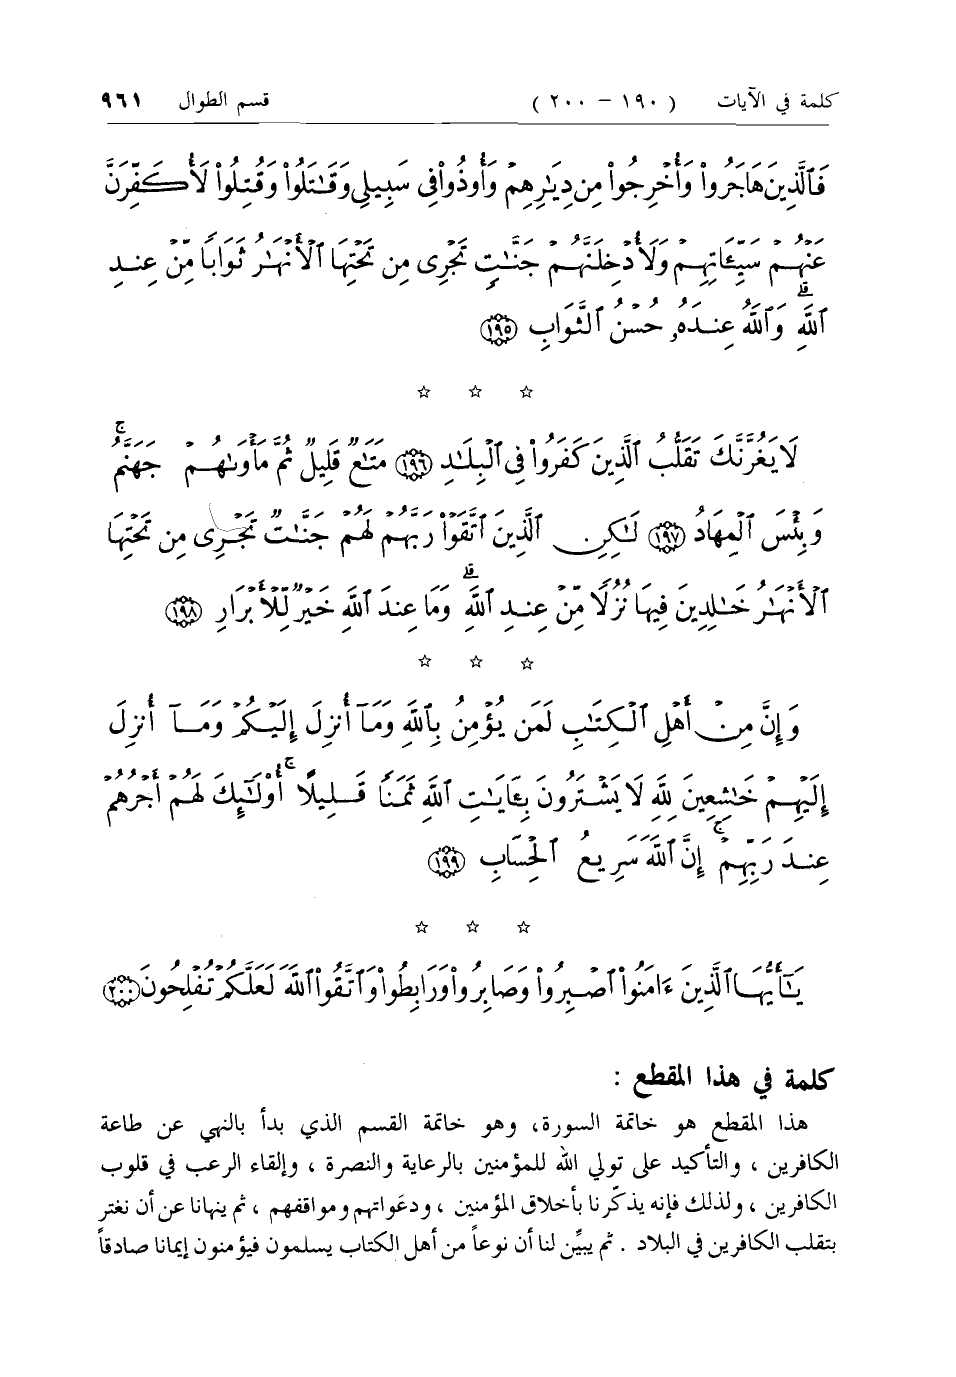 كلمة في الآيات ( ١٩٠ – ٢٠٠ ) قسم الطوال ٩٦١
فَٱلَّذِينَ هَاجَرُوا۟ وَأُخْرِجُوا۟ مِن دِيَـٰرِهِمْ وَأُوذُوا۟ فِى سَبِيلِى وَقَـٰتَلُوا۟ وَقُتِلُوا۟ لَأُكَفِّرَنَّ
عَنْهُمْ سَيِّـَٔاتِهِمْ وَلَأُدْخِلَنَّهُمْ جَنَّـٰتٍ تَجْرِى مِن تَحْتِهَا ٱلْأَنْهَـٰرُ ثَوَابًا مِّنْ عِندِ
ٱللَّهِ ۗ وَٱللَّهُ عِندَهُۥ حُسْنُ ٱلثَّوَابِ ﴿١٩٥﴾
☆ ☆ ☆
لَا يَغُرَّنَّكَ تَقَلُّبُ ٱلَّذِينَ كَفَرُوا۟ فِى ٱلْبِلَـٰدِ ﴿١٩٦﴾ مَتَـٰعٌ قَلِيلٌ ثُمَّ مَأْوَىٰهُمْ جَهَنَّمُ ۚ
وَبِئْسَ ٱلْمِهَادُ ﴿١٩٧﴾ لَـٰكِنِ ٱلَّذِينَ ٱتَّقَوْا۟ رَبَّهُمْ لَهُمْ جَنَّـٰتٌ تَجْرِى مِن تَحْتِهَا
ٱلْأَنْهَـٰرُ خَـٰلِدِينَ فِيهَا نُزُلًا مِّنْ عِندِ ٱللَّهِ ۗ وَمَا عِندَ ٱللَّهِ خَيْرٌ لِّلْأَبْرَارِ ﴿١٩٨﴾
☆ ☆ ☆
وَإِنَّ مِنْ أَهْلِ ٱلْكِتَـٰبِ لَمَن يُؤْمِنُ بِٱللَّهِ وَمَآ أُنزِلَ إِلَيْكُمْ وَمَآ أُنزِلَ
إِلَيْهِمْ خَـٰشِعِينَ لِلَّهِ لَا يَشْتَرُونَ بِـَٔايَـٰتِ ٱللَّهِ ثَمَنًا قَلِيلًا ۚ أُو۟لَـٰٓئِكَ لَهُمْ أَجْرُهُمْ
عِندَ رَبِّهِمْ ۚ إِنَّ ٱللَّهَ سَرِيعُ ٱلْحِسَابِ ﴿١٩٩﴾
☆ ☆ ☆
يَـٰٓأَيُّهَا ٱلَّذِينَ ءَامَنُوا۟ ٱصْبِرُوا۟ وَصَابِرُوا۟ وَرَابِطُوا۟ وَٱتَّقُوا۟ ٱللَّهَ لَعَلَّكُمْ تُفْلِحُونَ ﴿٢٠٠﴾
كلمة في هذا المقطع :
هذا المقطع هو خاتمة السورة، وهو خاتمة القسم الذي بدأ بالنهي عن طاعة
الكافرين ، والتأكيد على تولي الله للمؤمنين بالرعاية والنصرة ، وإلقاء الرعب في قلوب
الكافرين ، ولذلك فإنه يذكّرنا بأخلاق المؤمنين ، ودعَواتهم ومواقفهم ، ثم ينهانا عن أن نغتر
بتقلب الكافرين في البلاد . ثم يبيِّن لنا أن نوعاً من أهل الكتاب يسلمون فيؤمنون إيمانا صادقاً